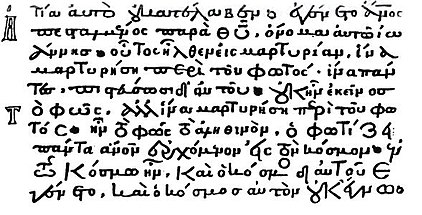 τία αὐτὸ οὐ κατέλαβεν· ἐγένετο ἄνος
ἀπεσταλμένος παρὰ θυ, ὄνομα αὐτῶ ἰω
άννης· οὗτος ἦλθεν εἰς μαρτυρίαν, ἵνα
μαρτυρήση περὶ τοῦ φωτός· ἵνα πάν
τες πιστεύσωσι δι αὐτοῦ· οὐκ ἦν ἐκεῖνος
τὸ φῶς, ἀλλ ἵνα μαρτυρήση περὶ τοῦ φω
τός· ἦν τὸ φῶς τὸ ἀληθινὸν, ὃ φωτίζει
πάντα ἄνον ἐρχόμενον εἰς τὸν κόσμον· ἐν
τῶ κόσμω ἦν, καὶ ὁ κόσμος δι αὐτοῦ ἐ
γένετο, καὶ ὁ κόσμος αὐτὸν οὐκ ἔγνω